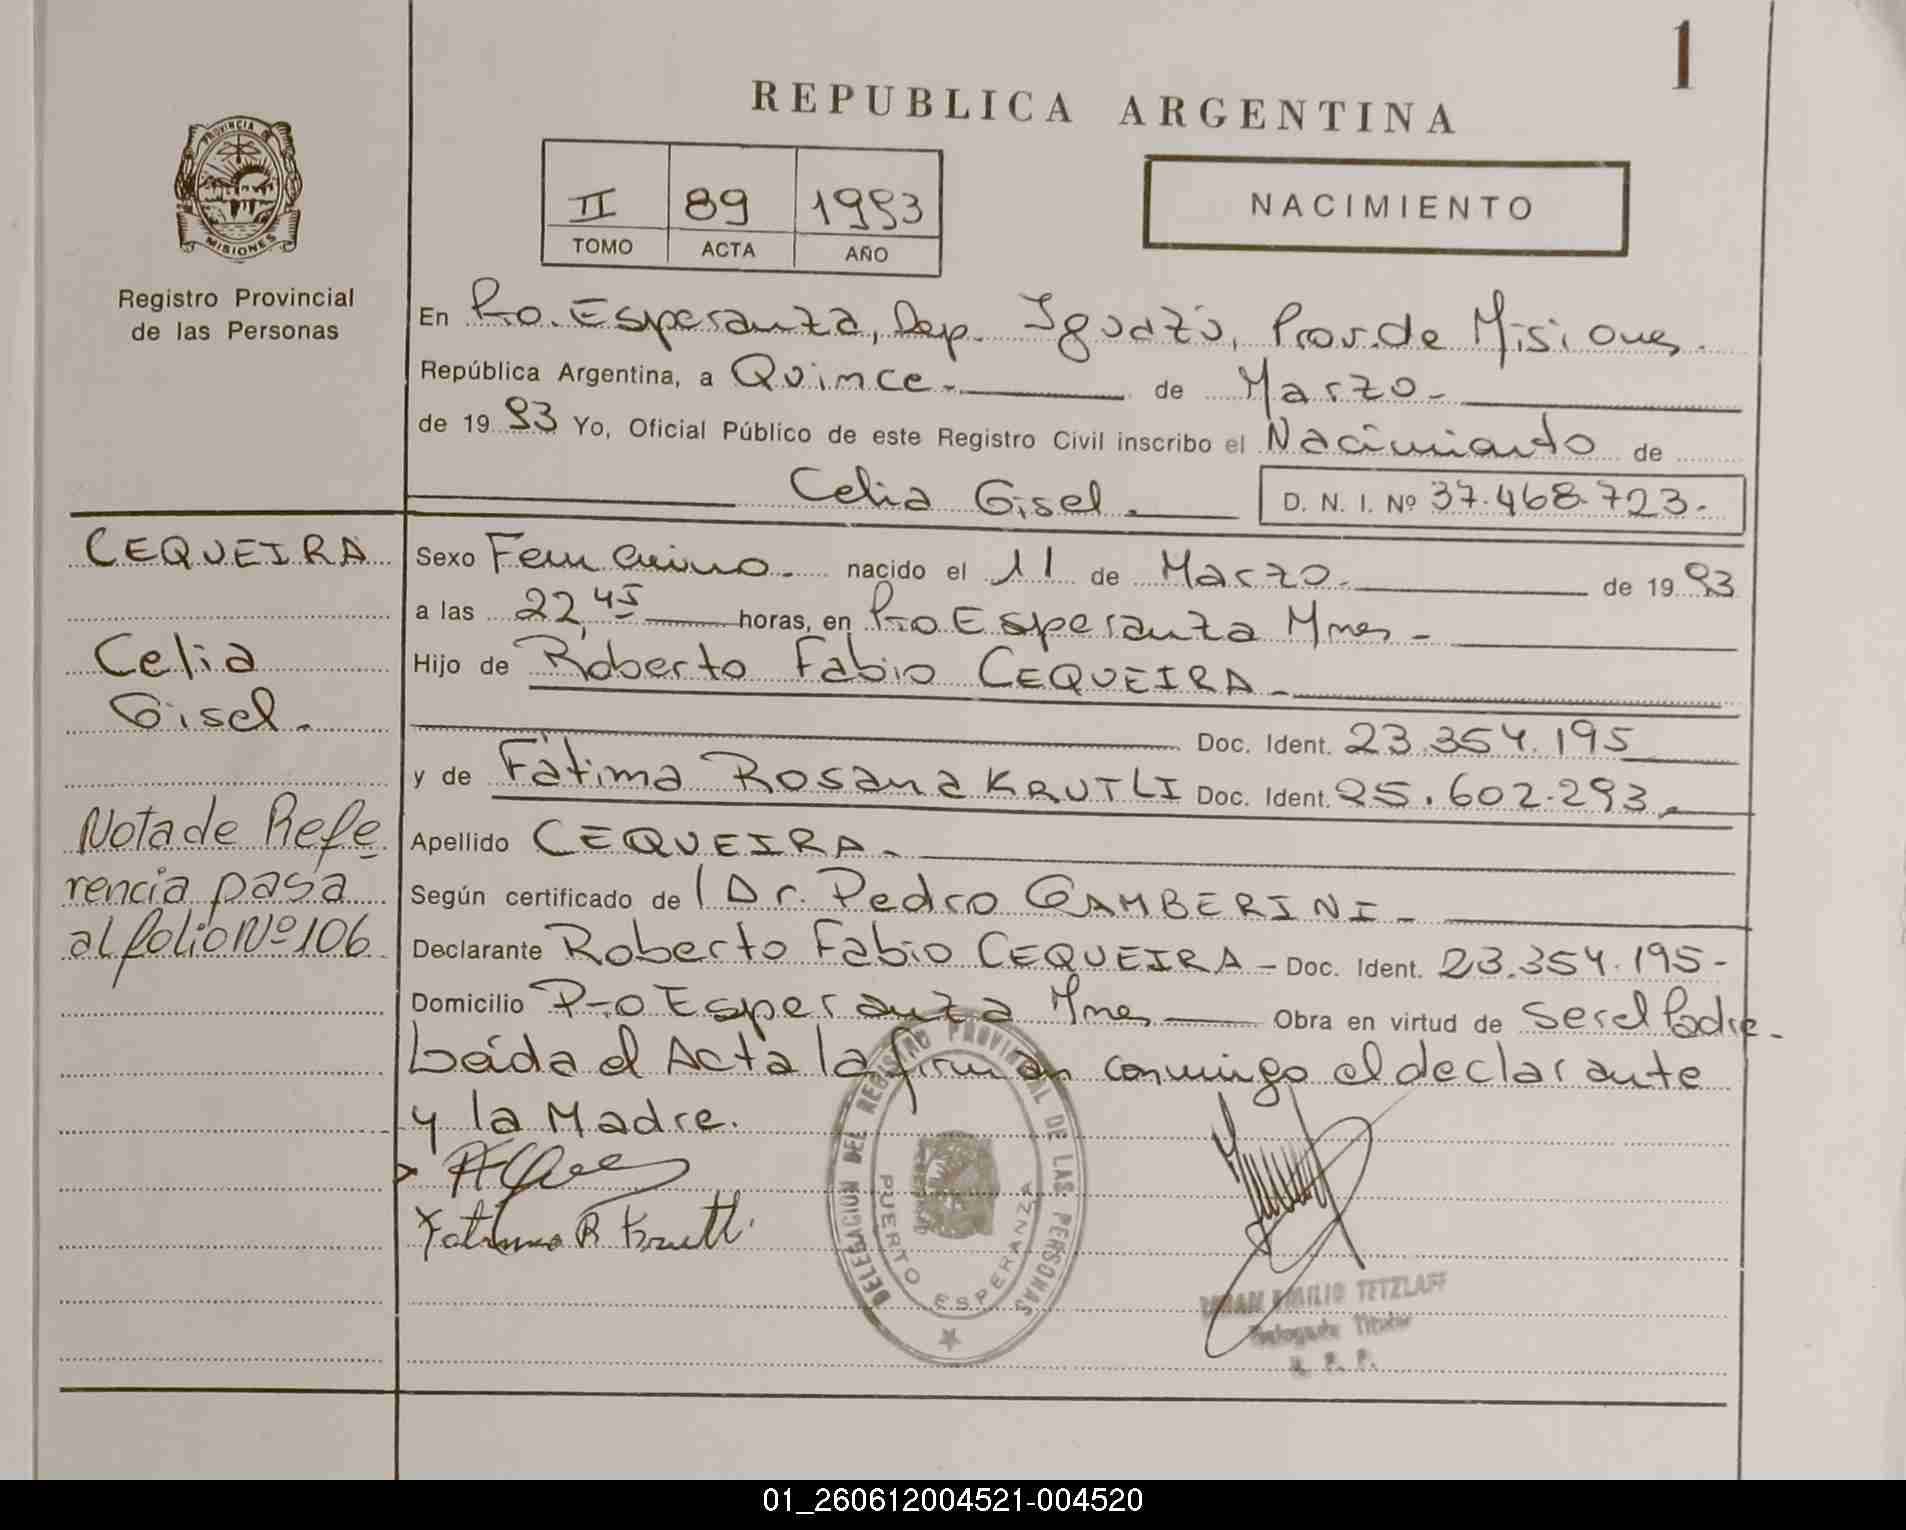 1
REPUBLICA ARGENTINA
PROVINCIA DE
MISIONES
II 89 1993
TOMO ACTA AÑO
NACIMIENTO
Registro Provincial
de las Personas
En Pto. Esperanza, Dep. Iguazú, Prov. de Misiones.
República Argentina, a Quince.- de Marzo.-
de 1993 Yo, Oficial Público de este Registro Civil inscribo el Nacimiento de
Celia Gisel.- D. N. I. Nº 37.468.723.-
CEQUEIRA
Celia
Gisel.-
Nota de Refe
rencia pasa
al folio Nº 106
Sexo Femenino.- nacido el 11 de Marzo.- de 1993
a las 22,45 horas, en Pto Esperanza Mnes.-
Hijo de Roberto Fabio CEQUEIRA.-
Doc. Ident. 23.354.195
y de Fátima Rosana KRUTLI Doc. Ident. 25.602.293.-
Apellido CEQUEIRA.-
Según certificado de l Dr. Pedro GAMBERINI.-
Declarante Roberto Fabio CEQUEIRA - Doc. Ident. 23.354.195-
Domicilio Pto Esperanza Mnes Obra en virtud de ser el Padre.-
Leída el Acta la firman conmigo el declarante
y la Madre.
Fatima R Krutli
DELEGACION DEL REGISTRO PROVINCIAL DE LAS PERSONAS
PUERTO ESPERANZA
EMILIO TETZLAFF
Delegado Titular
R. P. P.
01_260612004521-004520